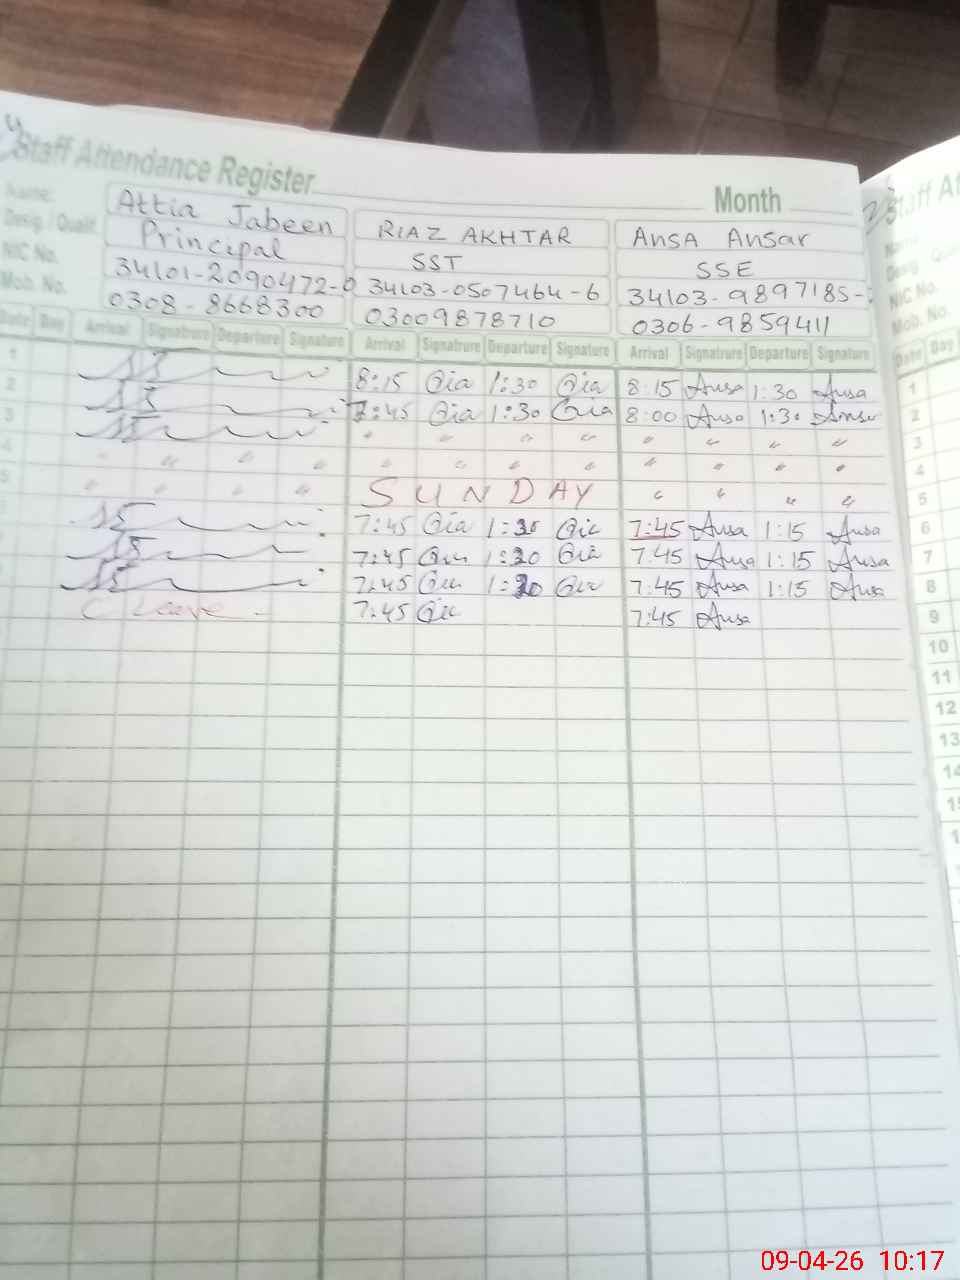 Staff Attendance Register Month
Name: Attia Jabeen RIAZ AKHTAR Ansa Ansar
Desig. / Qualif. Principal SST SSE
NIC No. 34101-2090472-0 34103-0507464-6 34103-9897185-
Mob. No. 0308-8668300 03009878710 0306-9859411
Date Day Arrival Signatrure Departure Signature Arrival Signatrure Departure Signature Arrival Signatrure Departure Signature
1 8:15 1:30 8:15 Ansa 1:30 Ansa
2 7:45 1:30 8:00 Ansa 1:30 Ansa
3 " " " " " " " "
4 " " " " " " " " " " " "
5 " " " " SUNDAY " " " "
7:45 1:30 7:45 Ansa 1:15 Ansa
7:45 1:30 7:45 Ansa 1:15 Ansa
7:45 1:30 7:45 Ansa 1:15 Ansa
C Leave - 7:45 7:45 Ansa
Staff At
Name
Desig.
NIC No.
Mob. No.
Date Day
1
2
3
4
5
6
7
8
9
10
11
12
13
09-04-26 10:17